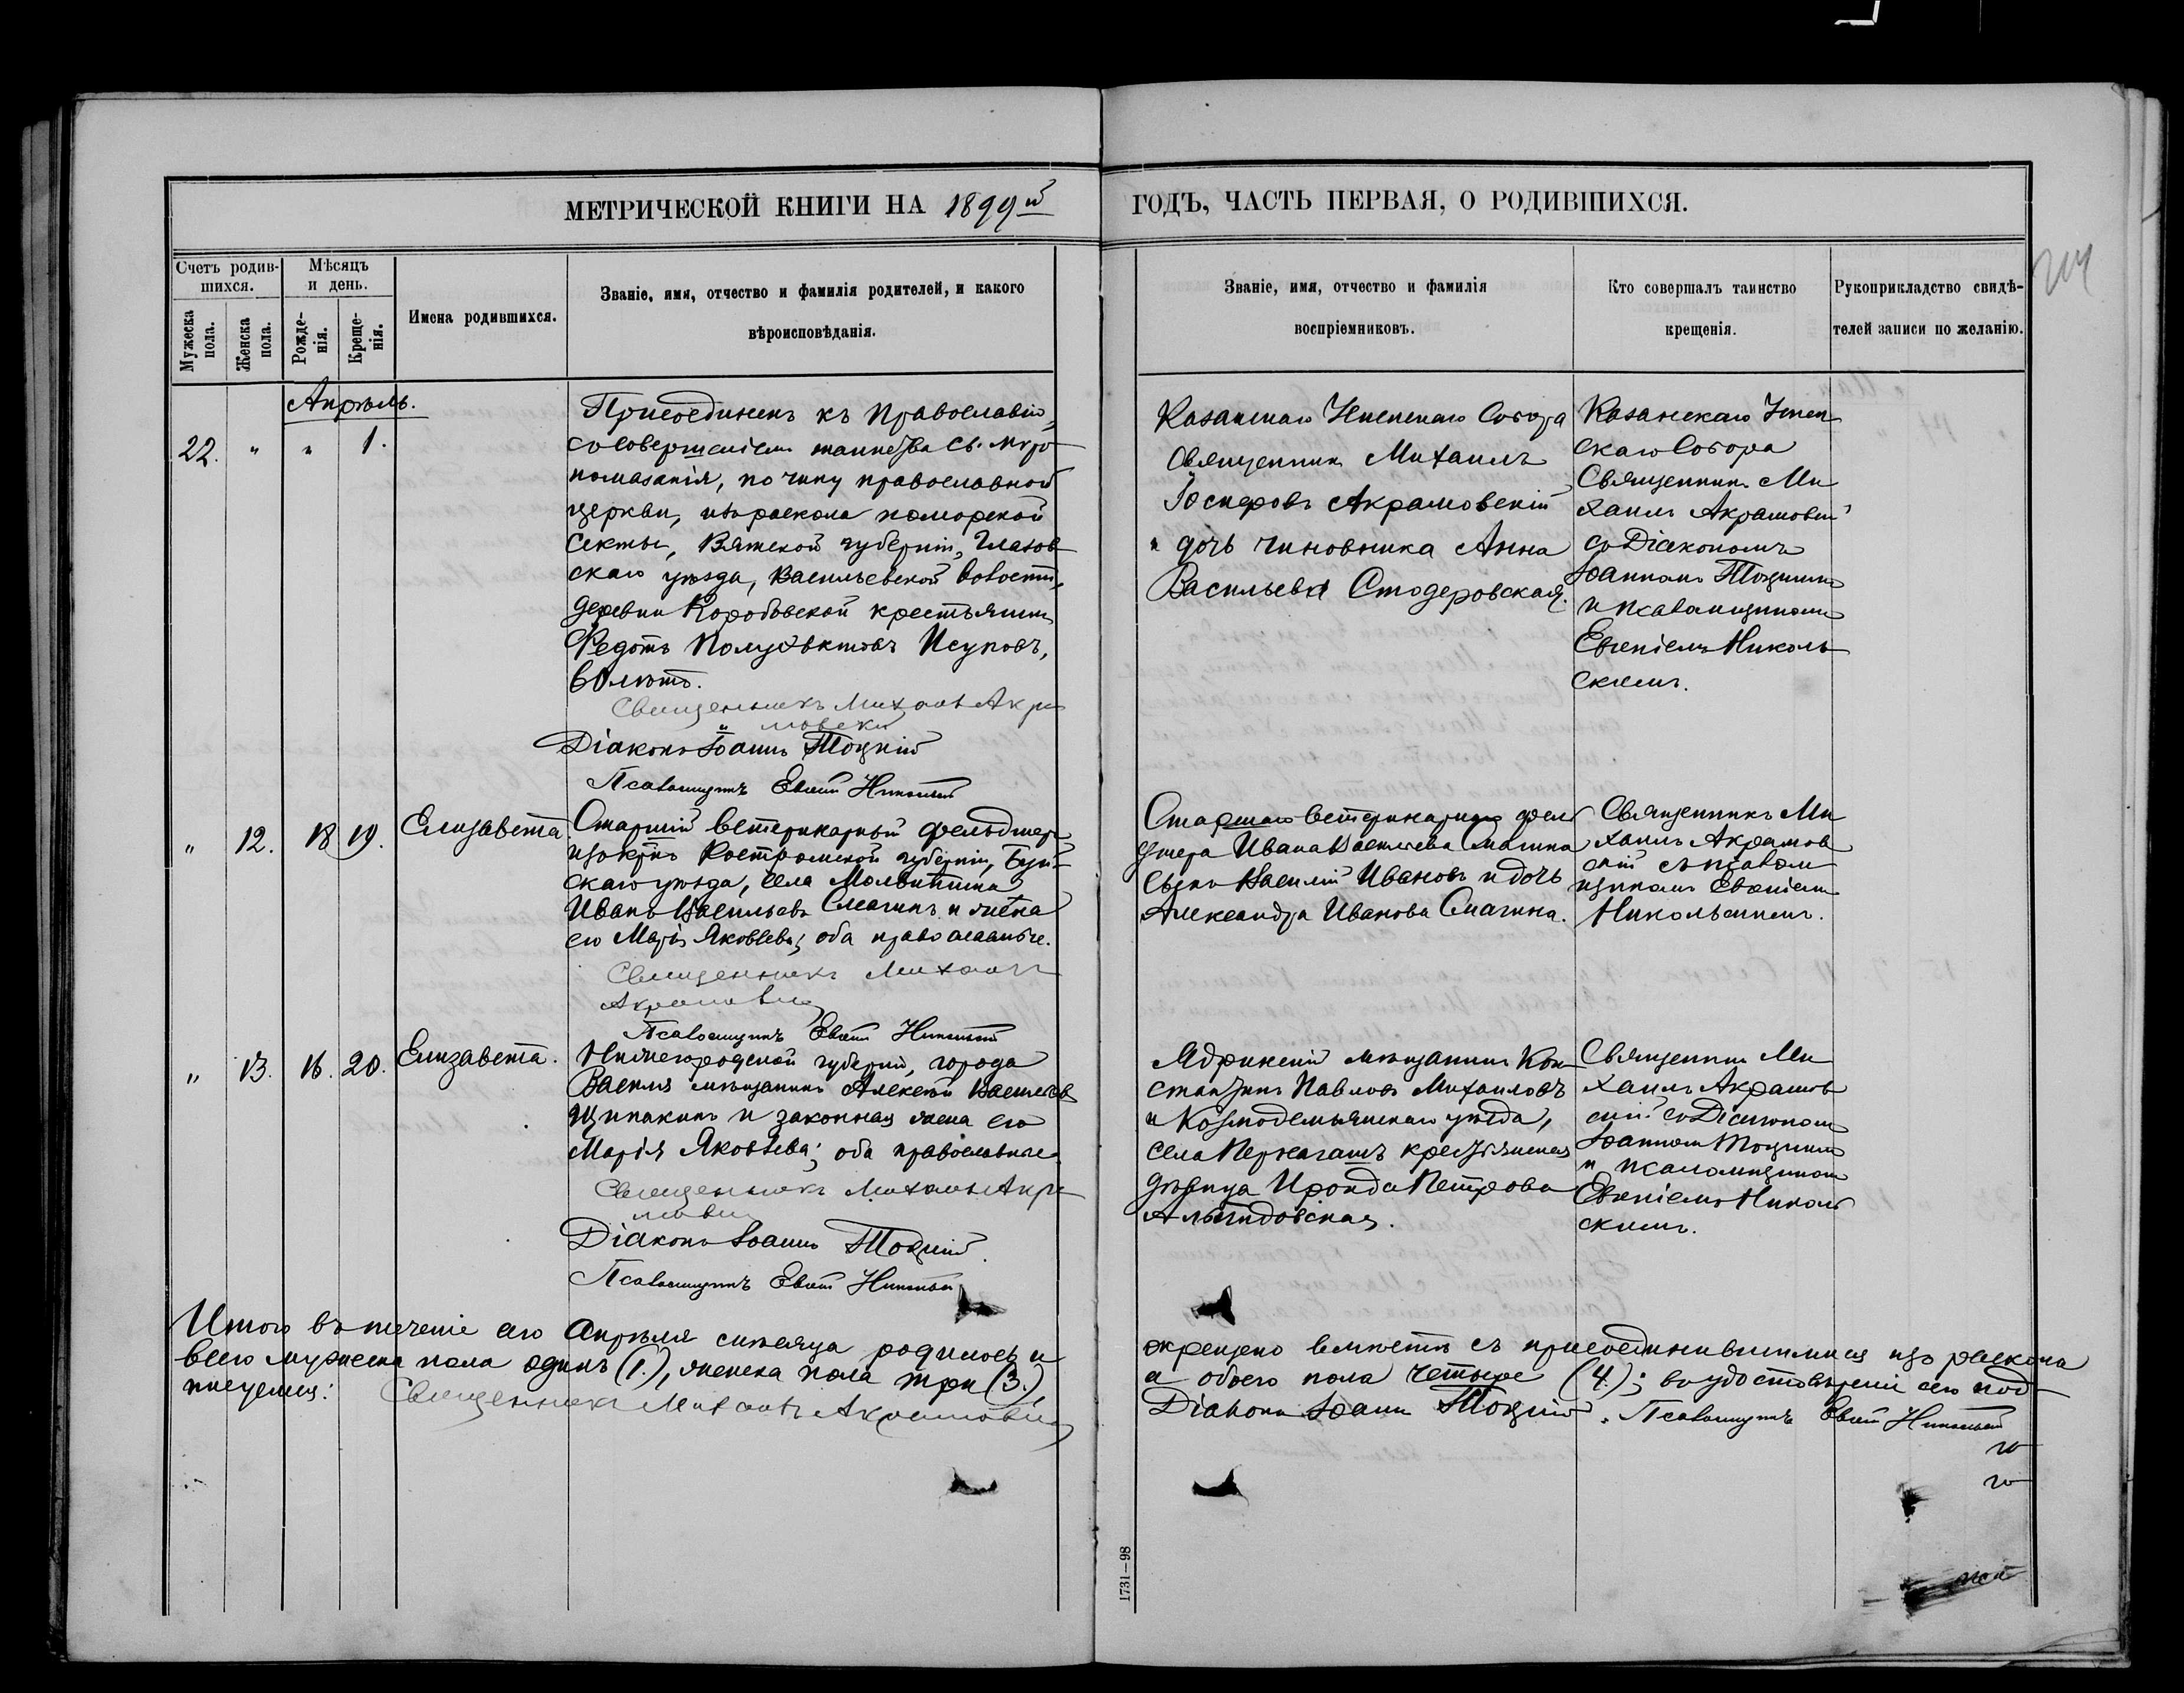 МЕТРИЧЕСКОЙ КНИГИ НА 1899й
ГОДЪ, ЧАСТЬ ПЕРВАЯ, О РОДИВШИХСЯ.
Счетъ родив-
шихся.
Мѣсяцъ
и день.
Мужеска пола.
Женска пола.
Рожде-
нія.
Креще-
нія.
Имена родившихся.
Званіе, имя, отчество и фамилія родителей, и какого
вѣроисповѣданія.
Званіе, имя, отчество и фамилія
воспріемниковъ.
Кто совершалъ таинство
крещенія.
Рукоприкладство свидѣ-
телей записи по желанію.
Апрѣль.
22. " " 1.
Присоединенъ къ православію,
со совершеніемъ таинства св. мѵро
помазанія, по чину православной
церкви, изъ раскола поморской
секты, Вятской губерніи, Глазов
скаго уѣзда, Васильевской волости,
деревни Коробовской крестьянинъ
Федотъ Полуэктовъ Исуповъ,
60 лѣтъ.
Священникъ Михаилъ Акра
мовскій
Діаконъ Іоаннъ Тоцкій
Псаломщикъ Евгеній Никольскій
Казанскаго Успенскаго Собора
Священникъ Михаилъ
Іосифовъ Акрамовскій
и дочь чиновника Анна
Васильева Стодеровская.
Казанскаго Успен
скаго Собора
Священникъ Ми
хаилъ Акрамовскій
со Діакономъ
Іоанномъ Тоцкимъ
и псаломщикомъ
Евгеніемъ Николь
скимъ.
" 12. 18 19. Елизавета.
Старшій ветеринарный фельдшеръ
изъ кр-нъ Костромской губерніи, Буй-
скаго уѣзда, села Молвитина
Иванъ Васильевъ Смагинъ и жена
его Марія Яковлева; оба православные.
Священникъ Михаилъ
Акрамовскій
Псаломщикъ Евгеній Никольскій
Старшаго ветеринарнаго фель
дшера Ивана Васильева Смагина
сынъ Василій Ивановъ и дочь
Александра Иванова Смагина.
Священникъ Ми
хаилъ Акрамов
скій съ псалом
щикомъ Евгеніемъ
Никольскимъ.
" 13. 16. 20. Елизавета.
Нижегородской губерніи, города
Василя мѣщанинъ Алексѣй Васильевъ
Щипакинъ и законная жена его
Марія Яковлева; оба православные.
Священникъ Михаилъ Акра
мовскій
Діаконъ Іоаннъ Тоцкій.
Псаломщикъ Евгеній Никольскій
Ядринскій мѣщанинъ Кон
стантинъ Павловъ Михаиловъ
и Козмодемьянскаго уѣзда,
села крестьянская
дѣвица Ироида Петрова
Священникъ Ми
хаилъ Акрамов
скій со Діакономъ
Іоанномъ Тоцкимъ
и псаломщикомъ
Евгеніемъ Николь
скимъ.
Итого въ теченіе сего Апрѣля мѣсяца родилось и
окрещено вмѣстѣ съ присоединившимися изъ раскола
всего мужеска пола одинъ (1.), женска пола три (3.),
а обоего пола четыре (4.); въ удостовѣреніи сего под-
писуемся: Священникъ Михаилъ Акрамовскій
Діаконъ Іоаннъ Тоцкій. Псаломщикъ Евгеній Никольскій
1731—98